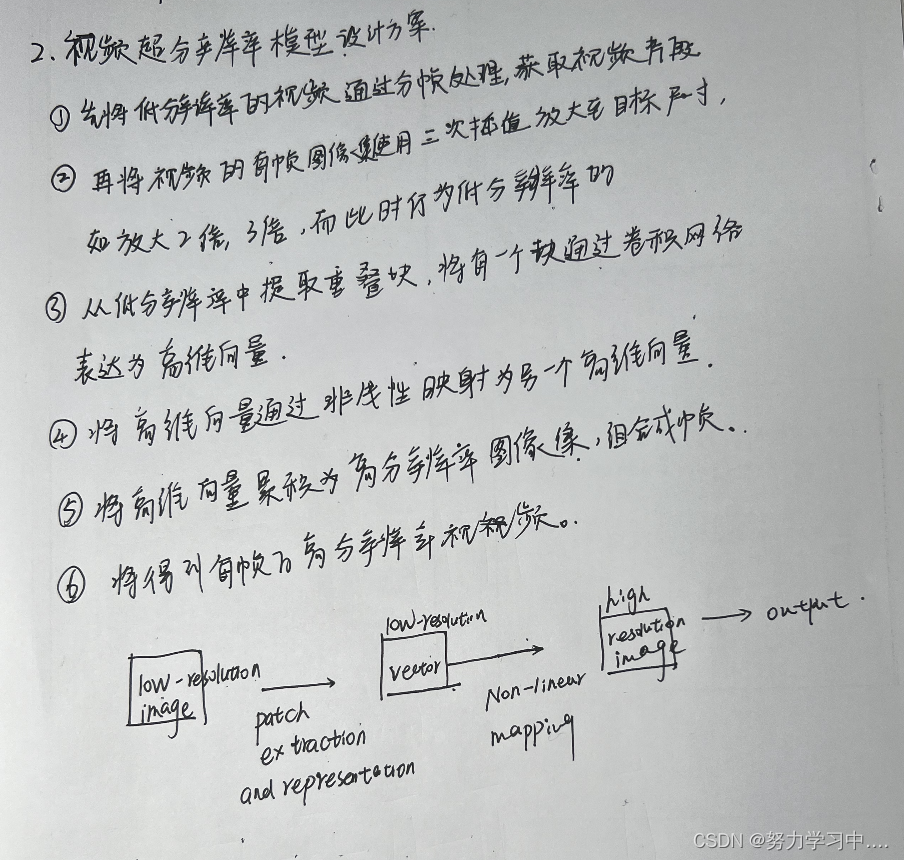 2. 视频超分辨率模型设计方案.
① 先将低分辨率的视频通过分帧处理,获取视频片段
② 再将视频的每帧图像集使用三次插值放大至目标尺寸,
如放大2倍,3倍,而此时仍为低分辨率的
③ 从低分辨率中提取重叠块,将每一个块通过卷积网络
表达为高维向量.
④ 将高维向量通过非线性映射为另一个高维向量.
⑤ 将高维向量累积为高分辨率图像集,组合成帧。
⑥ 将得到每帧的高分辨率视频。
low-resolution
image
patch
extraction
and representation
low-resolution
vector
Non-linear
mapping
high
resolution
image
output.
CSDN @努力学习中....